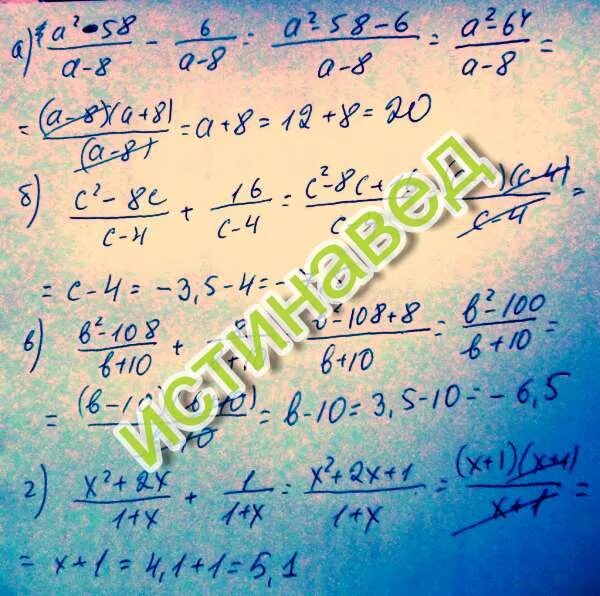 а) a²-58/a-8 - 6/a-8 = a²-58-6/a-8 = a²-64/a-8 =
= (a-8)(a+8)/(a-8) = a+8 = 12+8 = 20
б) c²-8c/c-4 + 16/c-4 = c²-8c+ )(c-4)/c-4 =
= c-4 = -3,5-4 = -
в) b²-108/b+10 + b²-108+8/b+10 = b²-100/b+10 =
= (b-10) = b-10 = 3,5-10 = -6,5
г) x²+2x/1+x + 1/1+x = x²+2x+1/1+x = (x+1)(x+1)/x+1 =
= x+1 = 4,1+1 = 5,1
истинавед